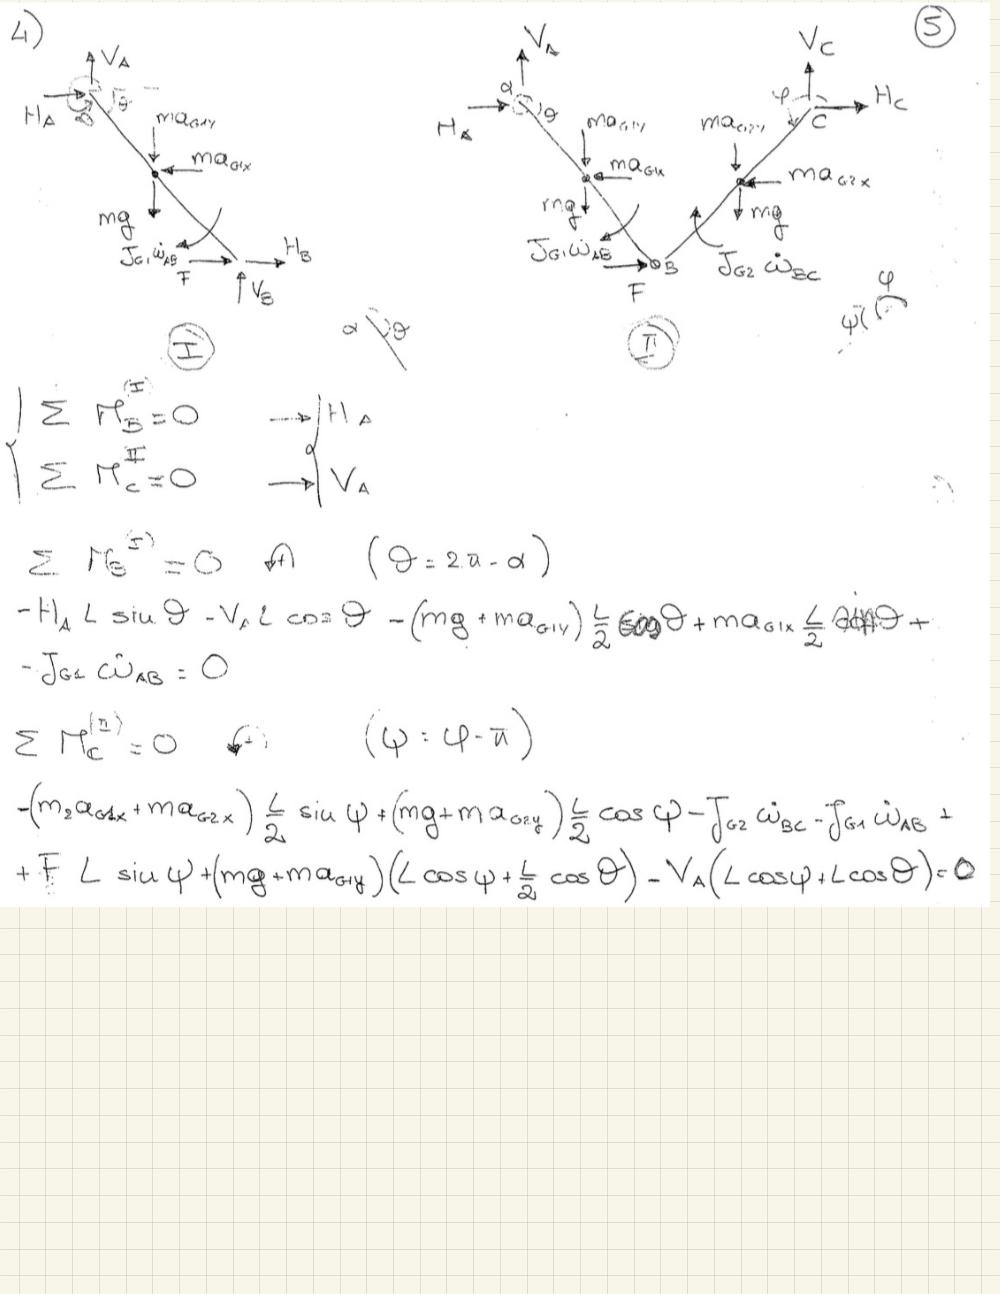 4)
5
V_A
H_A
θ
ma_G1y
ma_G1x
mg
J_G1 ω̇_AB
F
H_B
V_B
I
V_A
α
θ
H_A
ma_G1y
ma_G1x
mg
J_G1 ω̇_AB
F
B
V_C
φ
H_C
C
ma_G2y
ma_G2x
mg
J_G2 ω̇_BC
II
α θ
ψ φ
Σ M_B^(I) = 0 → H_A
Σ M_C^II = 0 → V_A
Σ M_B^(I) = 0 (+) (θ = 2π - α)
-H_A L sin θ - V_A L cos θ - (mg + ma_G1y) L/2 cos θ + ma_G1x L/2 sin θ +
- J_G1 ω̇_AB = 0
Σ M_C^(II) = 0 (+) (ψ = φ - π)
-(m_2 a_G1x + ma_G2x) L/2 sin ψ + (mg + ma_G2y) L/2 cos ψ - J_G2 ω̇_BC - J_G1 ω̇_AB +
+ F L sin ψ + (mg + ma_G1y)(L cos ψ + L/2 cos θ) - V_A (L cos ψ + L cos θ) = 0